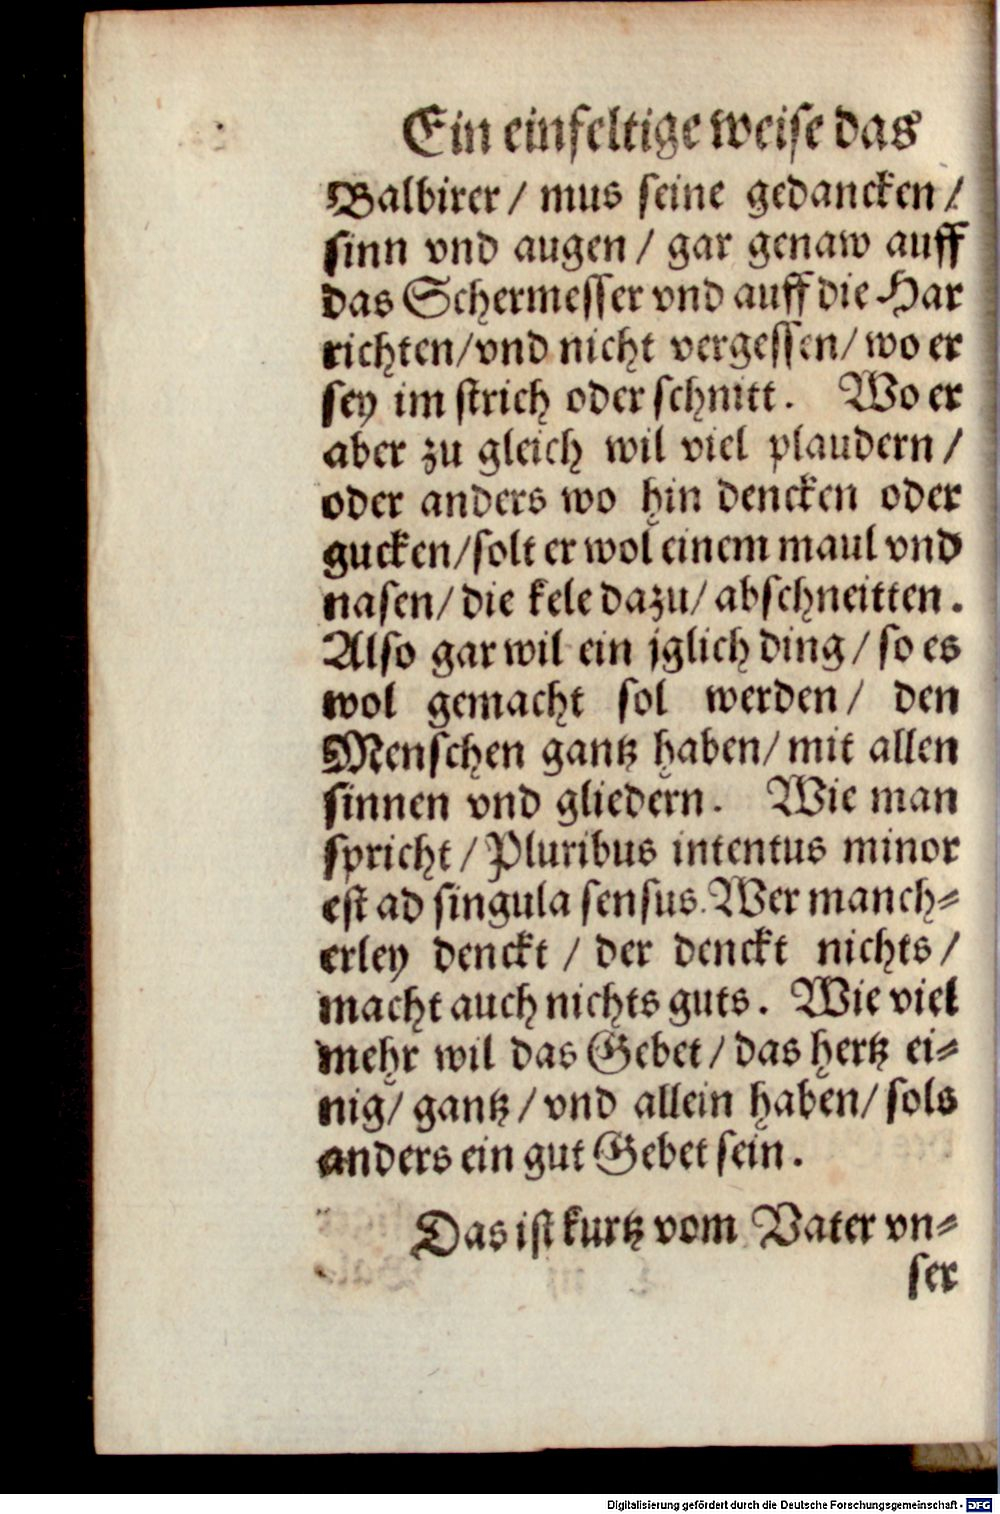 Ein einfeltige weise das
Balbirer / mus seine gedancken /
sinn vnd augen / gar genaw auff
das Schermesser vnd auff die Har
richten/vnd nicht vergessen/ wo er
sey im strich oder schnitt. Wo er
aber zu gleich wil viel plaudern /
oder anders wo hin dencken oder
gucken/solt er wol einem maul vnd
nasen/ die kele dazu/ abschneitten.
Also gar wil ein jglich ding / so es
wol gemacht sol werden / den
Menschen gantz haben/ mit allen
sinnen vnd gliedern. Wie man
spricht / Pluribus intentus minor
est ad singula sensus. Wer manch⸗
erley denckt / der denckt nichts /
macht auch nichts guts. Wie viel
mehr wil das Gebet / das hertz ei⸗
nig/ gantz / vnd allein haben/ sols
anders ein gut Gebet sein.
Das ist kurtz vom Vater vn⸗
ser
Digitalisierung gefördert durch die Deutsche Forschungsgemeinschaft - DFG